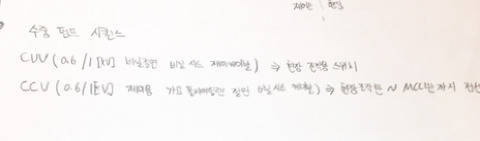 제어반 현장
수중 펌프 시퀀스
CVV (0.6/1[kV] 비닐절연 비닐시스 제어케이블) ⇒ 현장 조작용 스위치
CCV (0.6/1[kV] 제어용 가교 폴리에틸렌 절연 비닐시스 케이블) ⇒ 현장조작반 ~ MCC반까지 전선